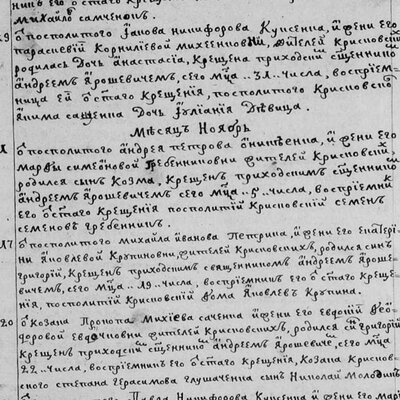 михаилъ самченокъ.
9 ѿ посполитого никифорова купсенка, и жени его
параскевіи корниліевой михеенковни, жителей крисковскихъ
родилась дочь анастасіа, крещена приходскимъ сщенникомъ
андреемъ ярошевичемъ, сего мца 31. числа, воспріем-
ница ей ѿ стаго крещенія, посполитого крисковского
якима сащенка дочь іуліанія девица.
Месяцъ Ноябрь
ѿ посполитого андрея петрова онищенка, и жени его
марфы симеоновой гребенниковни жителей крисковскихъ,
родился сынъ козма, крещенъ приходскимъ сщенникомъ
андреемъ ярошевичемъ сего мца 5. числа, воспріемникъ
его ѿ стаго крещенія посполитій крисковскій семенъ
семеновъ гребенникъ.
17 ѿ посполитого михаила иванова петрика, и жени его екатери-
ни яковлевой крупковни, жителей крисковскихъ, родился синъ
григорій, крещенъ приходскимъ священникомъ андреемъ яроше-
вичемъ, сего мца 19. числа, воспріемникъ его ѿ стаго креще-
нія, посполитій крисковскій яковлевъ крупка.
20 ѿ козака прокопа михіева саченка и жени его евдокіи фео-
доровой жителей крисковскихъ, родился синъ григорій
крещенъ приходскимъ сщенникомъ андреемъ ярошевичемъ, сего мца
22. числа, воспріемникъ его ѿ стаго крещенія, козака крисков-
ского степана герасимова глущенка синъ николай
павла никифорова купсенка и жени его мар